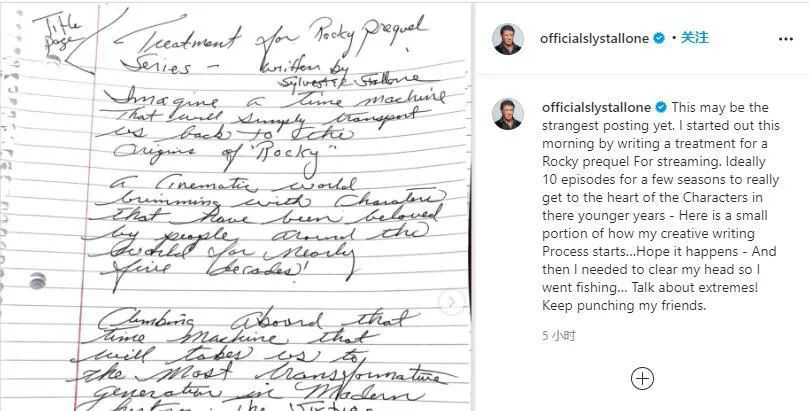 Title
page
Treatment for Rocky Prequel
Series - written by
Sylvester Stallone
Imagine a time machine
that will simply transport
us back to the
Origins of "Rocky"
A Cinematic world
brimming with Characters
that have been beloved
by people around the
World for Nearly
five decades!
Climbing Aboard that
time Machine that
will takes us to
the Most transformative
generation in Modern
officialslystallone · 关注
officialslystallone This may be the
strangest posting yet. I started out this
morning by writing a treatment for a
Rocky prequel For streaming. Ideally
10 episodes for a few seasons to really
get to the heart of the Characters in
there younger years - Here is a small
portion of how my creative writing
Process starts...Hope it happens - And
then I needed to clear my head so I
went fishing... Talk about extremes!
Keep punching my friends.
5 小时